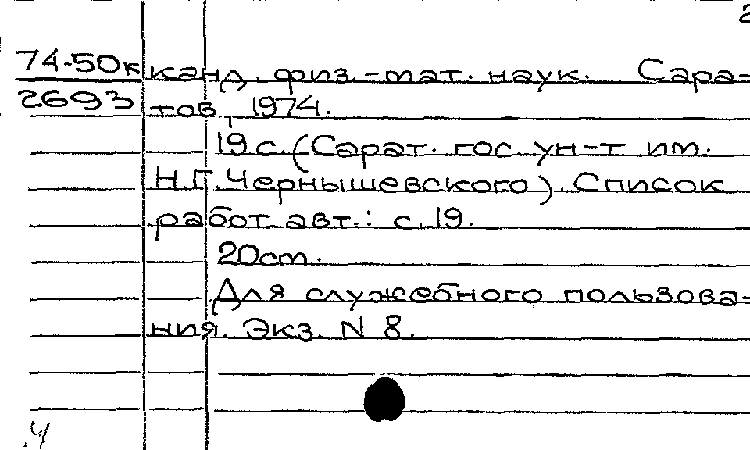 2
74-50к канд. физ.-мат. наук. Сара-
2693 тов, 1974.
19 с. (Сарат. гос. ун-т им.
Н.Г. Чернышевского). Список
работ авт.: с. 19.
20 см.
Для служебного пользова-
ния. Экз. N 8.